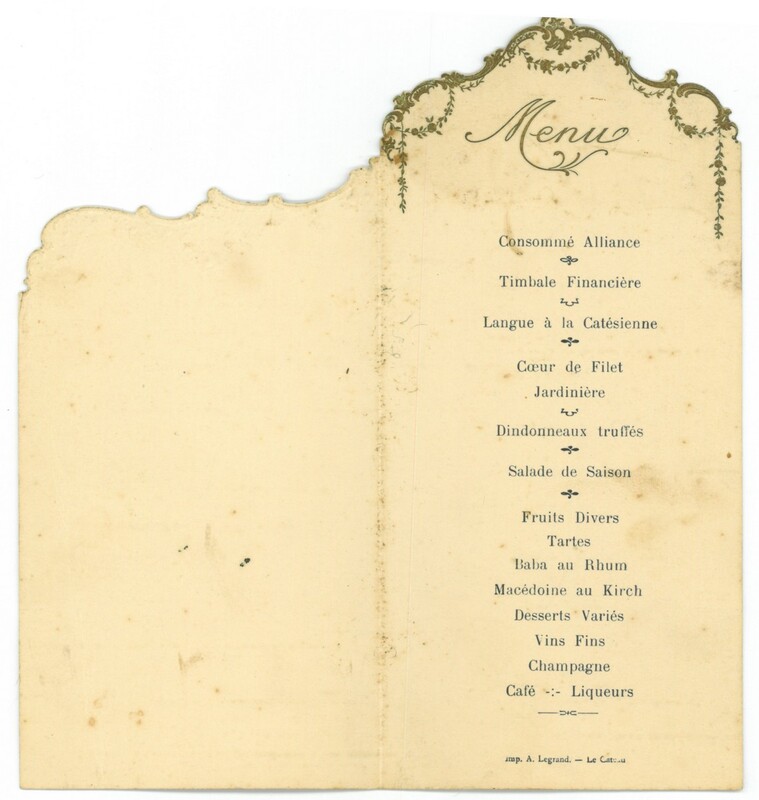 Menu
Consommé Alliance
Timbale Financière
Langue à la Catésienne
Cœur de Filet
Jardinière
Dindonneaux truffés
Salade de Saison
Fruits Divers
Tartes
Baba au Rhum
Macédoine au Kirch
Desserts Variés
Vins Fins
Champagne
Café -:- Liqueurs
Imp. A. Legrand. — Le Cateau